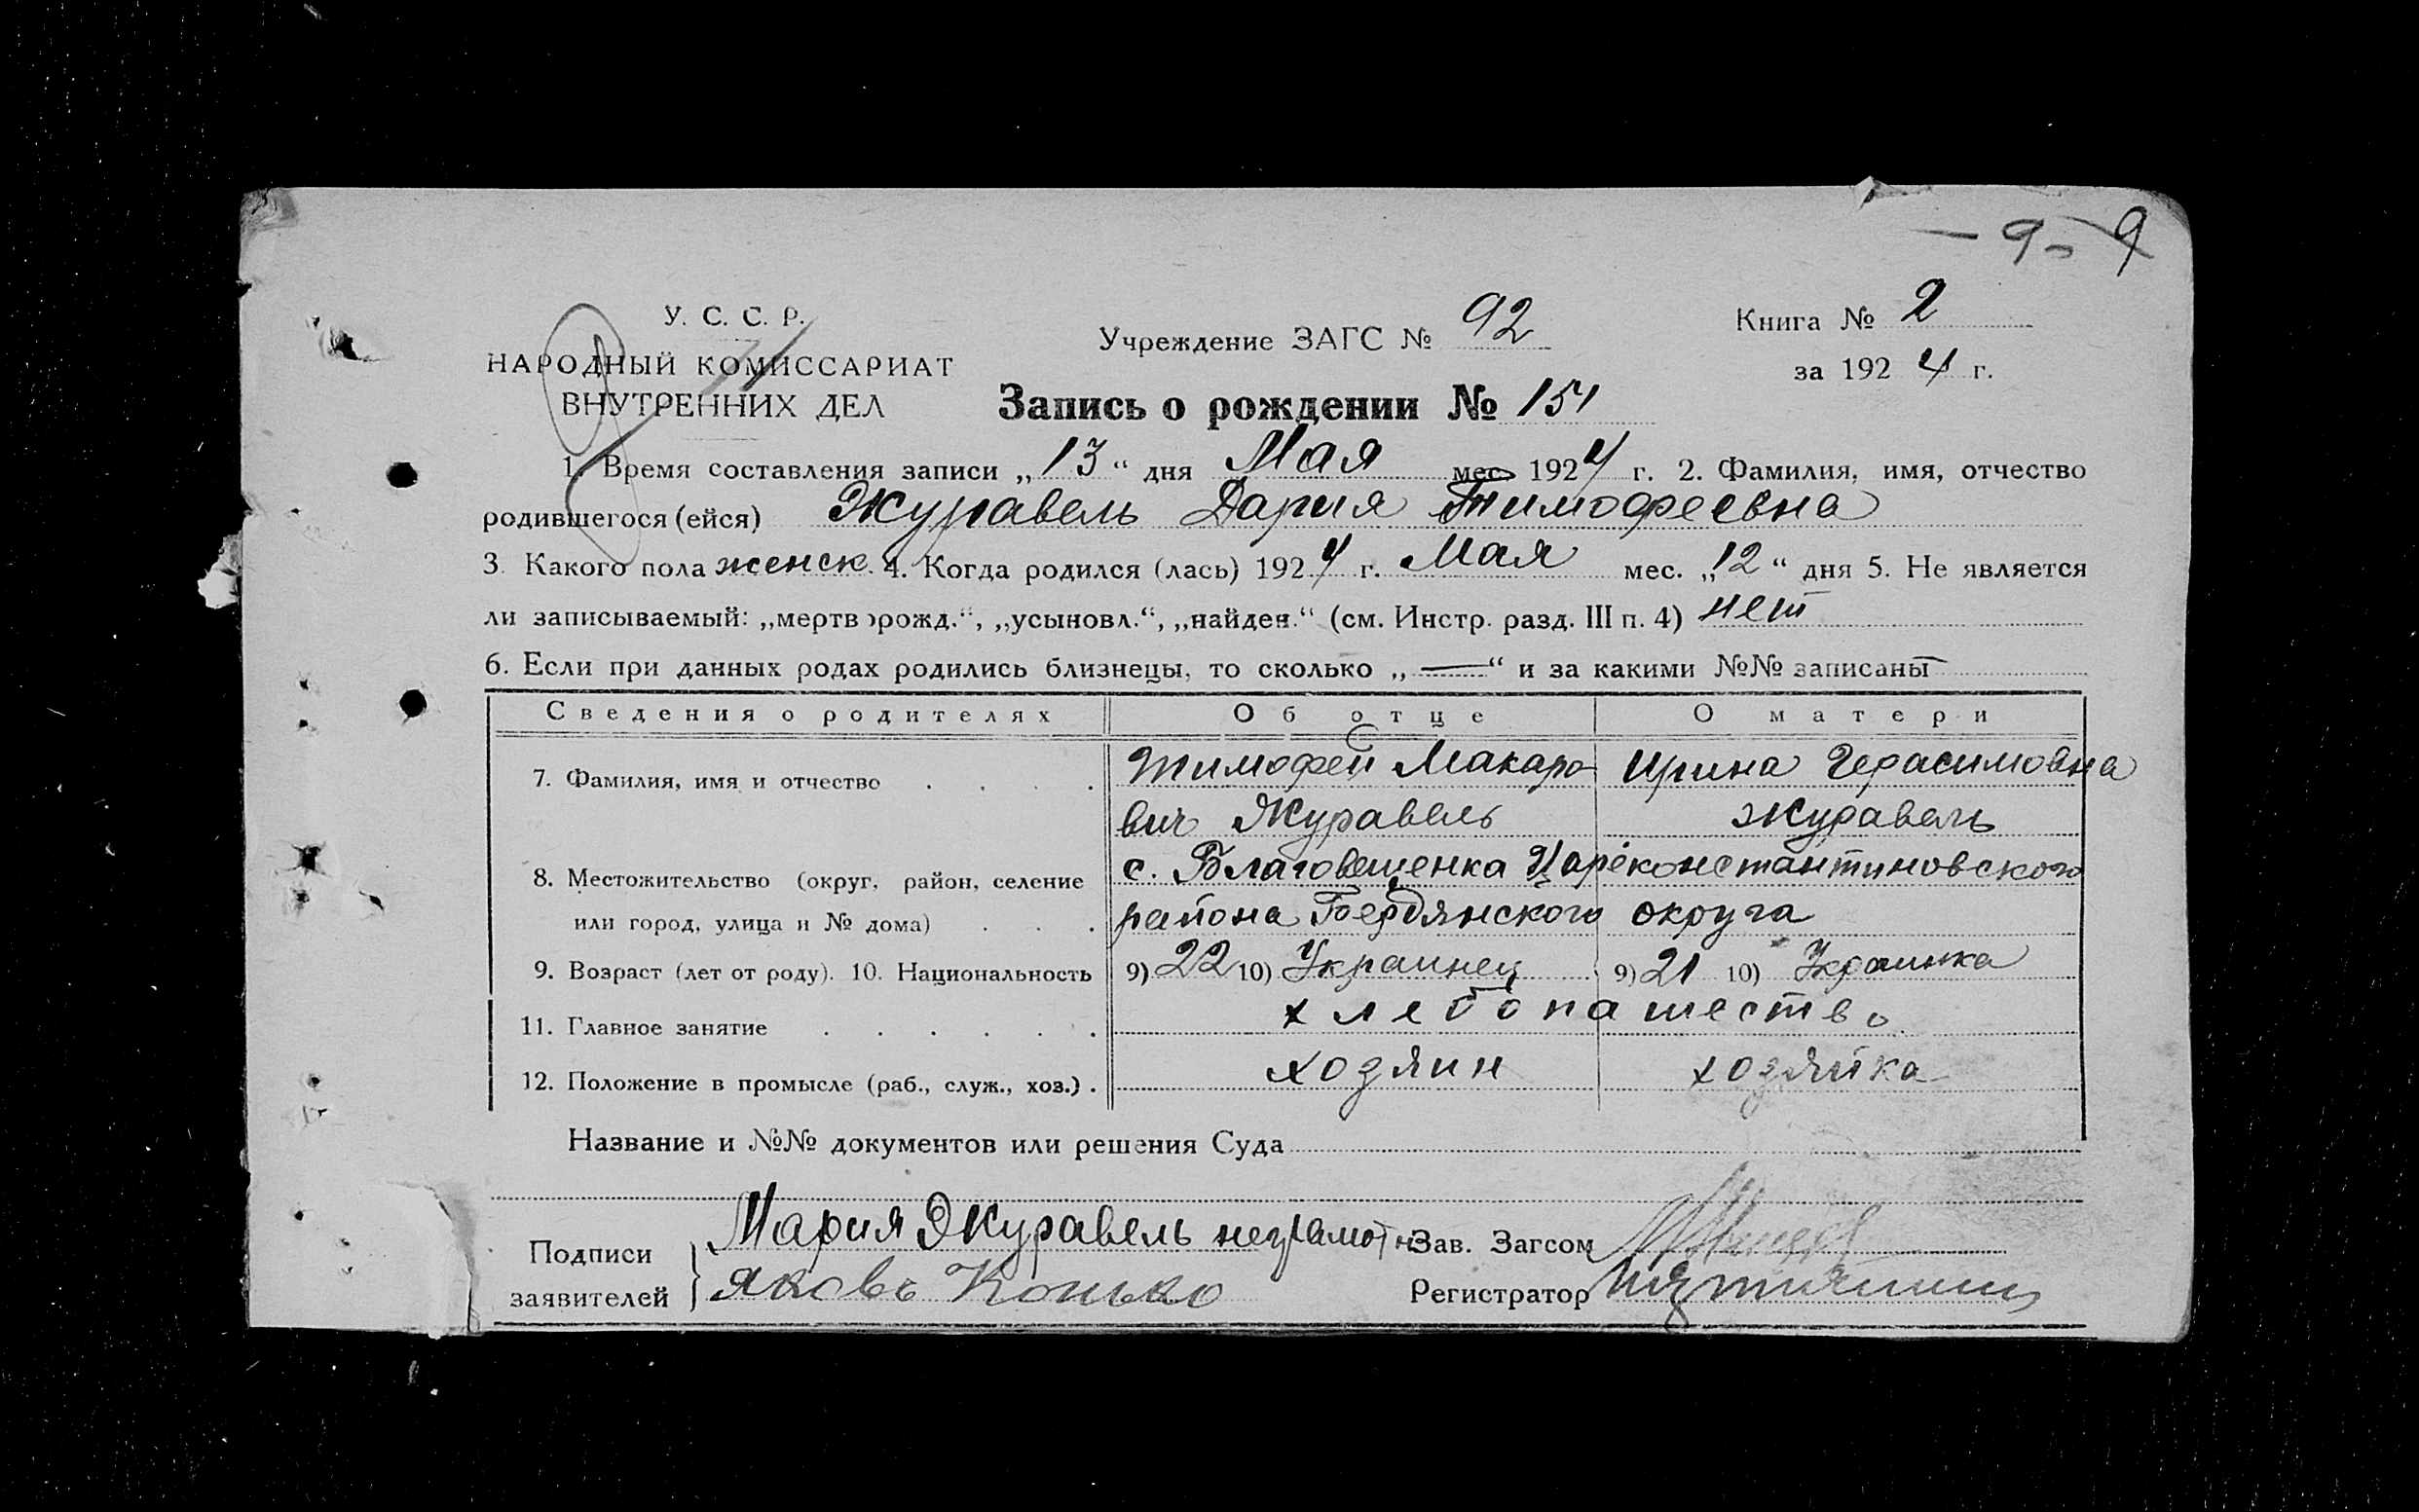 — 9 – 9
У. С. С. Р.
НАРОДНЫЙ КОМИССАРИАТ
ВНУТРЕННИХ ДЕЛ
Учреждение ЗАГС № 92
Книга № 2
за 1924 г.
Запись о рождении № 151
1. Время составления записи „13“ дня Мая мес. 1924 г. 2. Фамилия, имя, отчество
родившегося (ейся) Журавель Дария Тимофеевна
3. Какого пола женск. 4. Когда родился (лась) 1924 г. Мая мес. „12“ дня 5. Не является
ли записываемый: „мертворожд.“, „усыновл.“, „найден.“ (см. Инстр. разд. III п. 4) нет
6. Если при данных родах родились близнецы, то сколько „—“ и за какими №№ записаны —
Сведения о родителях Об отце О матери
7. Фамилия, имя и отчество . . . . Тимофей Макаро- Ирина Герасимовна
вич Журавель Журавель
8. Местожительство (округ, район, селение с. Благовещенка Цареконстантиновского
или город, улица и № дома) . . . района Бердянского округа
9. Возраст (лет от роду). 10. Национальность 9) 22 10) Украинец 9) 21 10) Украинка
11. Главное занятие . . . . . . хлебопашество
12. Положение в промысле (раб., служ., хоз.) . хозяин хозяйка
Название и №№ документов или решения Суда
Подписи заявителей } Мария Журавель неграмотн
Яковъ Конько
Зав. Загсом
Регистратор